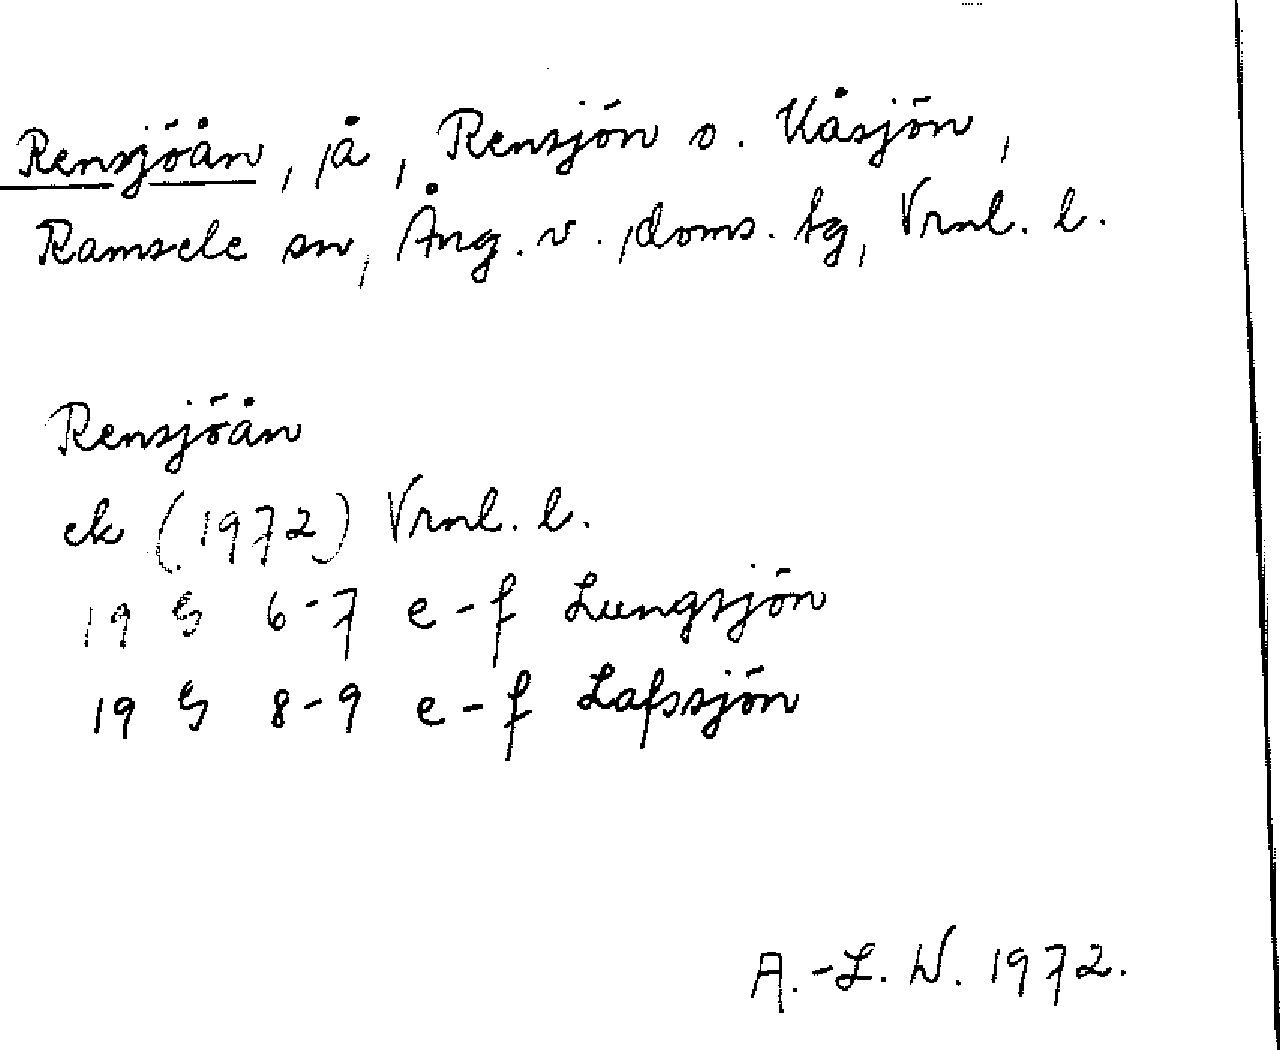 Rensjöån, å, Rensjön o. Kåsjön,
Ramsele sn, Ång. v. doms. tg, Vrnl. l.
Rensjöån
ek (1972) Vrnl. l.
19 G 6-7 e-f Lungsjön
19 G 8-9 e-f Lafssjön
A.-L. W. 1972.